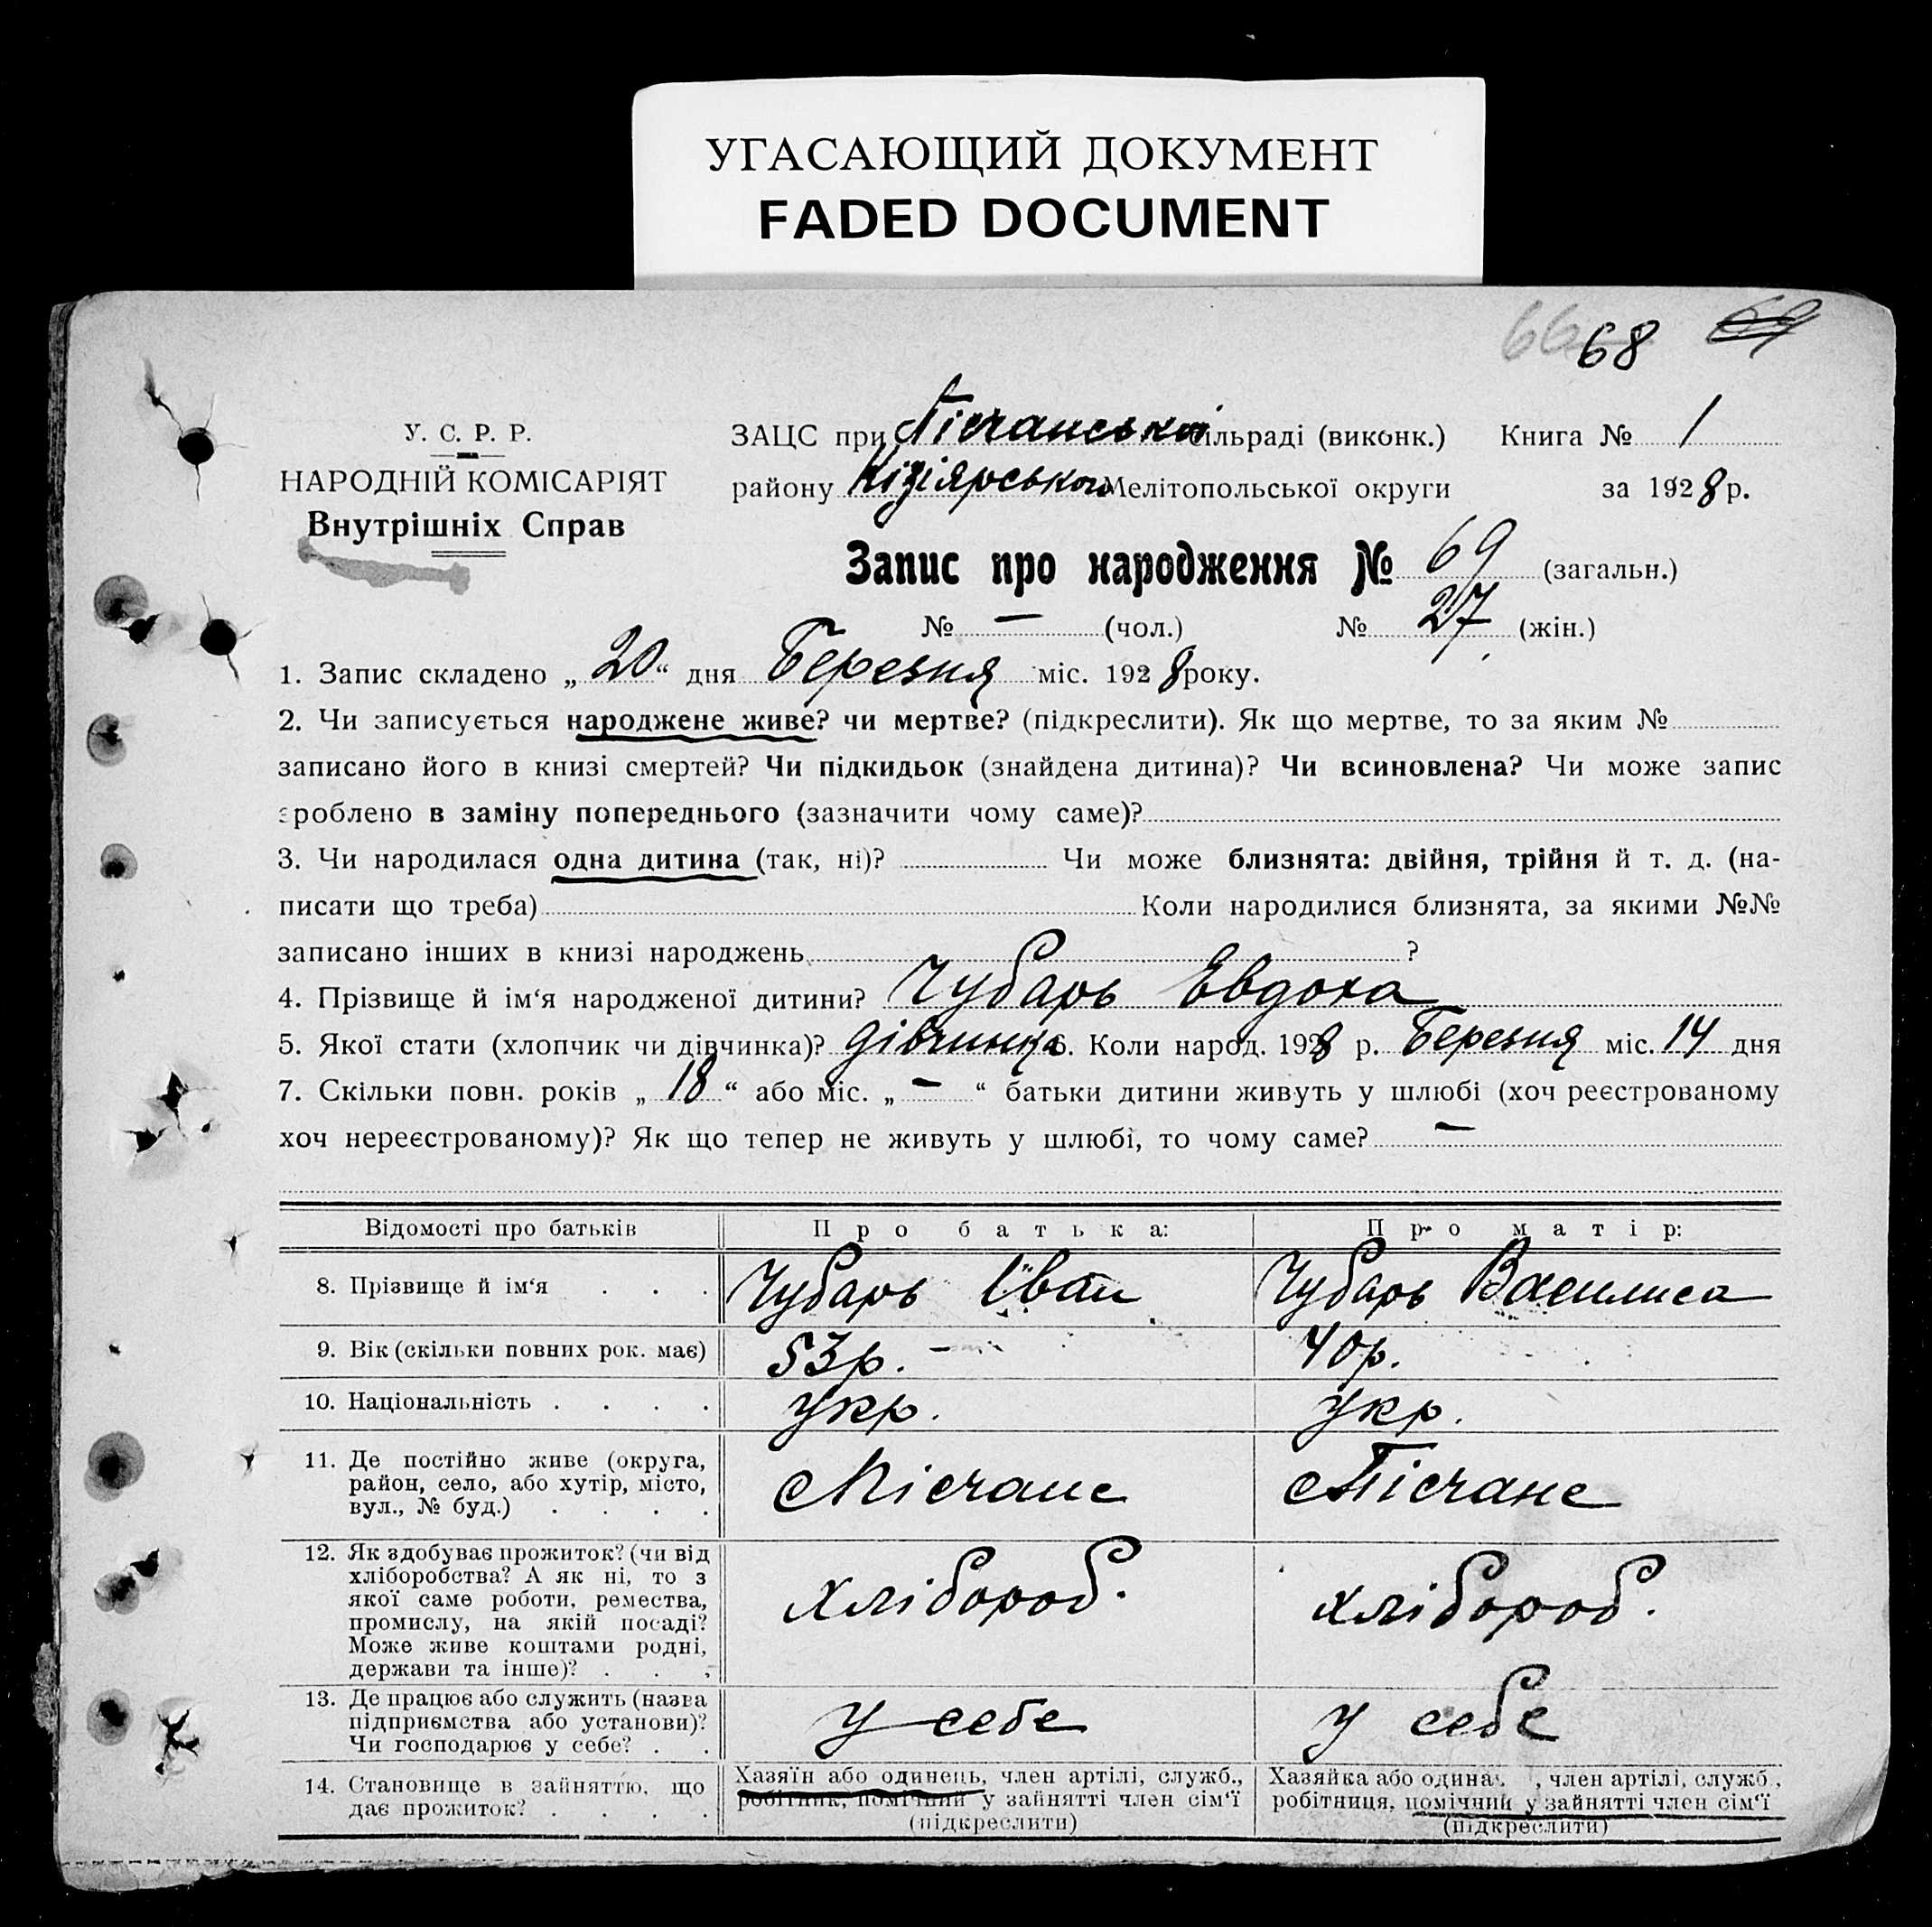 УГАСАЮЩИЙ ДОКУМЕНТ
FADED DOCUMENT
66 68 69
У. С. Р. Р.
НАРОДНІЙ КОМІСАРІЯТ
Внутрішніх Справ
ЗАЦС при Пісчанській сільраді (виконк.) Книга № 1
району Кізіярського Мелітопольської округи за 1928 р.
Запис про народження № 69 (загальн.)
№ — (чол.) № 27 (жін.)
1. Запис складено „ 20 “ дня Березня міс. 1928 року.
2. Чи записується народжене живе? чи мертве? (підкреслити). Як що мертве, то за яким №
записано його в книзі смертей? Чи підкидьок (знайдена дитина)? Чи всиновлена? Чи може запис
зроблено в заміну попереднього (зазначити чому саме)?
3. Чи народилася одна дитина (так, ні)? Чи може близнята: двійня, трійня й т. д. (на-
писати що треба) Коли народилися близнята, за якими №№
записано інших в книзі народжень ?
4. Прізвище й ім‘я народженої дитини? Чубарь Евдоха
5. Якої стати (хлопчик чи дівчинка)? дівчинка 6. Коли народ. 1928 р. Березня міс. 14 дня
7. Скільки повн. років „ 18 “ або міс. „ — “ батьки дитини живуть у шлюбі (хоч реєстрованому
хоч нереєстрованому)? Як що тепер не живуть у шлюбі, то чому саме? —
Відомості про батьків Про батька: Про матір:
8. Прізвище й ім‘я . . . Чубарь Іван Чубарь Василиса
9. Вік (скільки повних рок. має) 53р. — 40р.
10. Національність . . . . укр. укр.
11. Де постійно живе (округа,
район, село, або хутір, місто,
вул., № буд.) . . . .
с Пісчане с Пісчане
12. Як здобуває прожиток? (чи від
хліборобства? А як ні, то з
якої саме роботи, ремества,
промислу, на якій посаді?
Може живе коштами родні,
держави та інше)? . . .
хлібороб. хлібороб.
13. Де працює або служить (назва
підприємства або установи)?
Чи господарює у себе? . .
у себе у себе
14. Становище в зайняттю, що
дає прожиток? . . . .
Хазяїн або одинець, член артілі, служб.,
робітник, помічний у зайнятті член сім‘ї
(підкреслити)
Хазяйка або одина , член артілі, служб.,
робітниця, помічний у зайнятті член сім‘ї
(підкреслити)